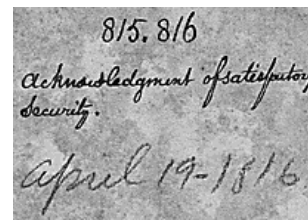 815.816
acknowledgment of satisfactory
security.
april 19-1816